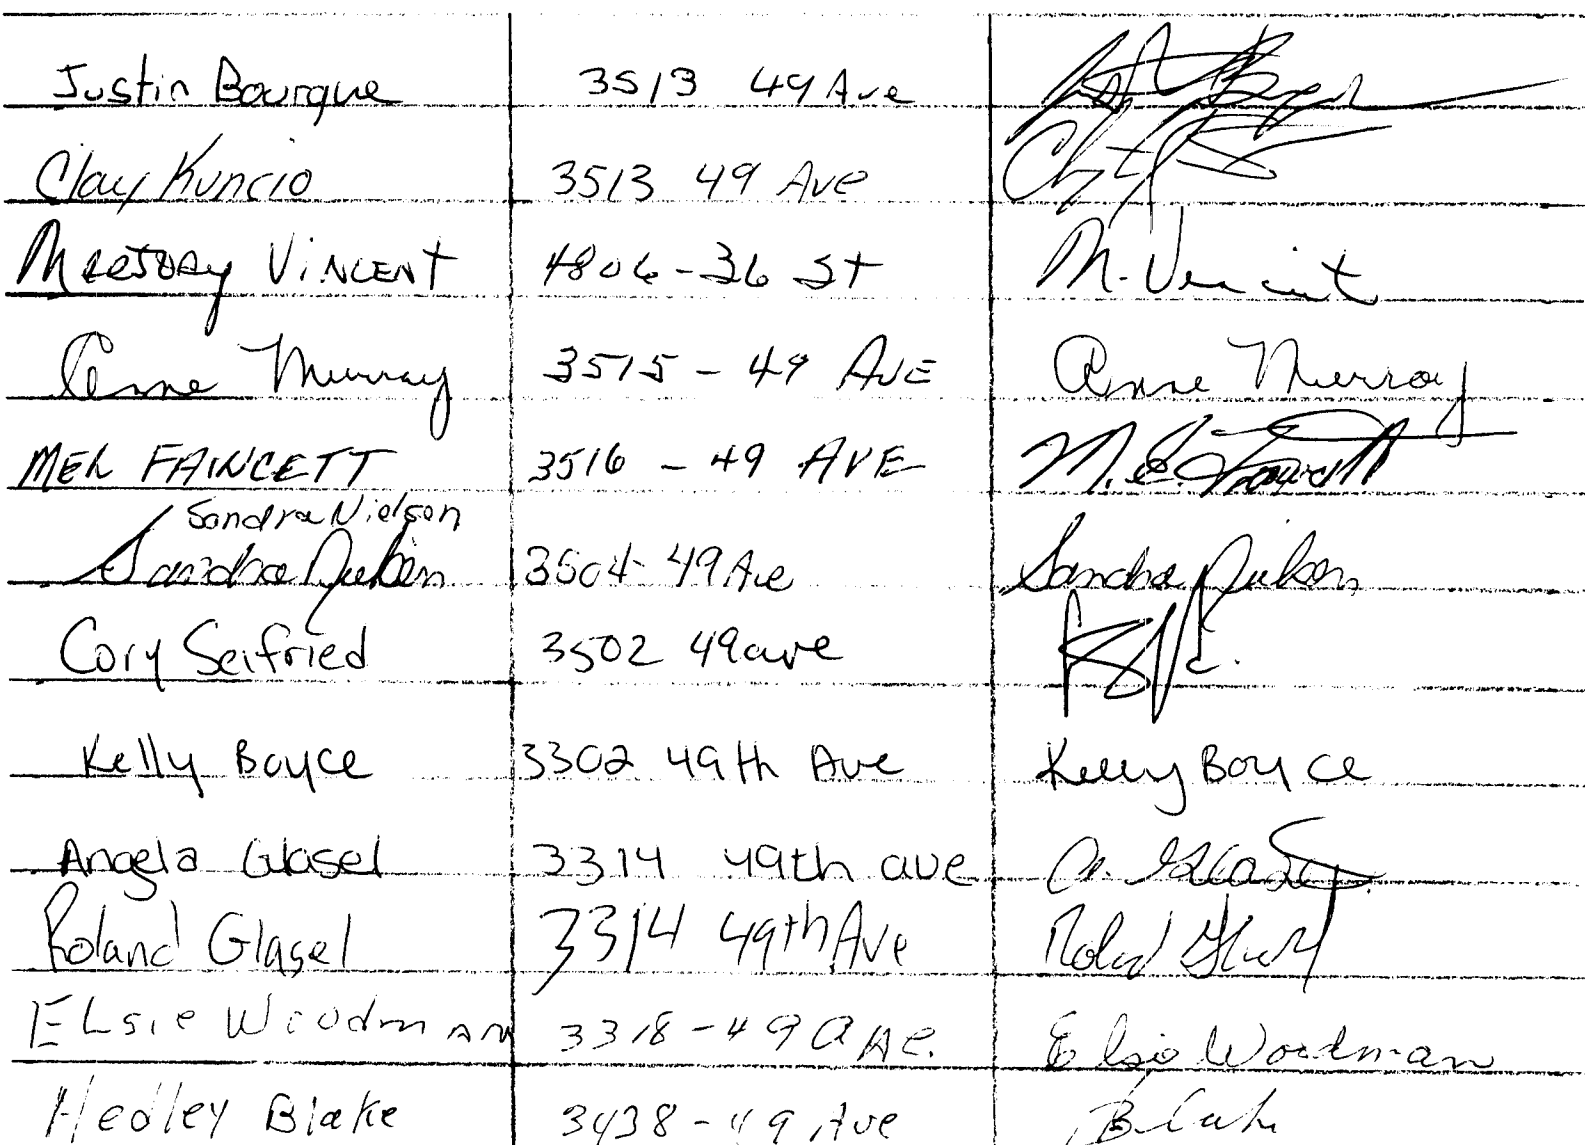 Justin Bourque 3513 49 Ave
Clay Kuncio 3513 49 Ave
Vincent 4806-36 St M. Vincent
Anne Murray 3515 - 49 Ave Anne Murray
MEL FAWCETT 3516 - 49 AVE M.E. Fawcett
Sandra Nielsen
Sandra Nielsen 3504-49 Ave Sandra Nielsen
Cory Seifried 3502 49 ave
Kelly Boyce 3302 49th Ave Kelly Boyce
Angela Glasel 3314 49th ave A. Glasel
Roland Glasel 3314 49th Ave Roland Glasel
Elsie Woodman 3318-49 Ave. Elsie Woodman
Hedley Blake 3438-49 Ave